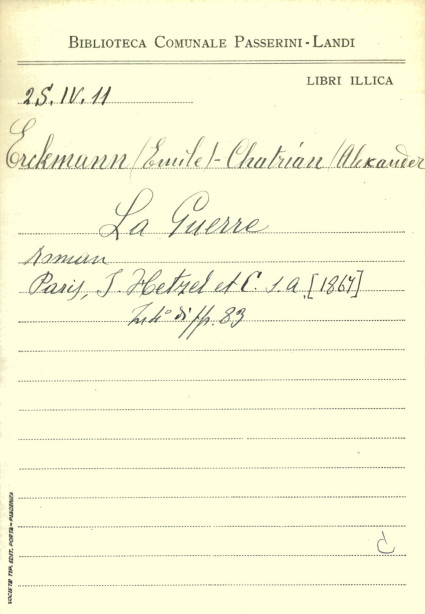 BIBLIOTECA COMUNALE PASSERINI-LANDI
LIBRI ILLICA
2S.IV.11
Erckmann (Emile)-Chatrian (Alexander
La Guerre
roman
Paris, J. Hetzel et C. s.a. [1867]
In 4° di pp. 83
SOCIETÀ TIP. EDIT. PORTA - PIACENZA